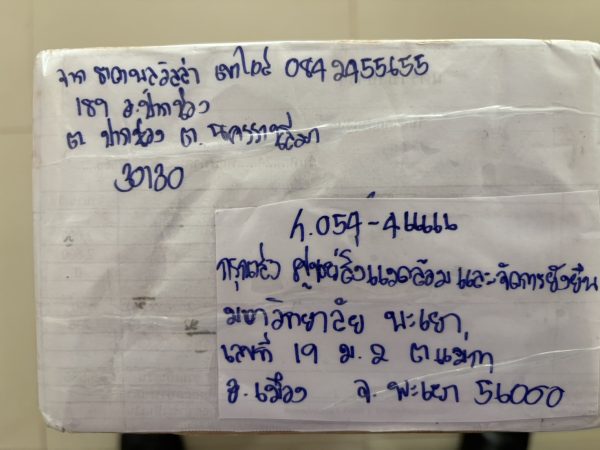 จาก ธาดาพลวิลล่า เขาใหญ่ 0842455655
189 อ.ปากช่อง
ต. ปากช่อง จ. นครราชสีมา
30130
กรุณาส่ง ศูนย์สิ่งแวดล้อม และจัดการยั่งยืน
มหาวิทยาลัย พะเยา
เลขที่ 19 ม. 2 ต.แม่กา
อ. เมือง จ. พะเยา 56000